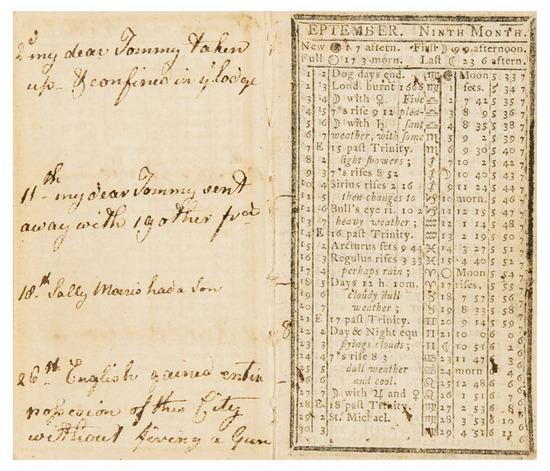 2d my dear Tommy taken
up & confined in ye lodge
11th my dear Tommy sent
away with 19 other
18th Sally Morris had a Son
26th English gained entire
possesion of this City
without fireing a Gun
EPTEMBER. NINTH MONTH.
New 1 7 aftern. First 9 9 afternoon.
Full 17 3 morn. Last 23 6 aftern.
1 2 Dog days end. Moon 5 33 7
2 3 Lond. burnt 1666 sets. 5 34 7
3 4 ☽ with ♀ Fine 2 7 42 5 35 7
4 5 7*s rise 9 12 plea- 3 8 9 5 36 7
5 6 ☽ with ♄ sant 4 8 35 5 38 7
6 7 weather, with some 5 9 2 5 39 7
7 E 15 past Trinity. 6 9 38 5 40 7
8 2 light showers; 7 10 2 5 42 7
9 3 7*s rise 8 52 8 10 5 43 7
10 4 Sirius rises 2 16 9 11 24 5 44 7
11 5 then changes to 10 morn. 5 46 7
12 6 Bull's eye ri. 10 2 11 12 15 5 47 7
13 7 heavy weather; 12 1 13 5 48 7
14 E 16 past Trinity. 13 2 19 5 50 7
15 2 Arcturus sets 9 44 3 27 5 51 7
16 3 Regulus rises 3 33 4 30 5 52 7
17 4 perhaps rain; Moon 5 54 7
18 5 Days 12 h. 10m. 17 rises. 5 55 7
19 6 cloudy dull 18 7 57 5 56 7
20 7 weather; 19 8 35 5 58 7
21 E 17 past Trinity. 20 9 14 5 59 7
22 2 Day & Night equ 21 10 2 6 0 7
23 3 flying clouds; 10 51 6 2 6
24 4 7*s rise 8 3 23 11 47 6 3 6
25 5 dull weather 24 morn 6 4 6
26 6 and cool. 25 12 48 6 6 6
27 7 ☽ with ♃ and ♀ 26 1 46 6 7 6
28 E 18 past Trinity. 27 2 48 6 8 6
29 2 St. Michael. 28 3 49 6 10 6
30 3 29 4 52 6 11 6